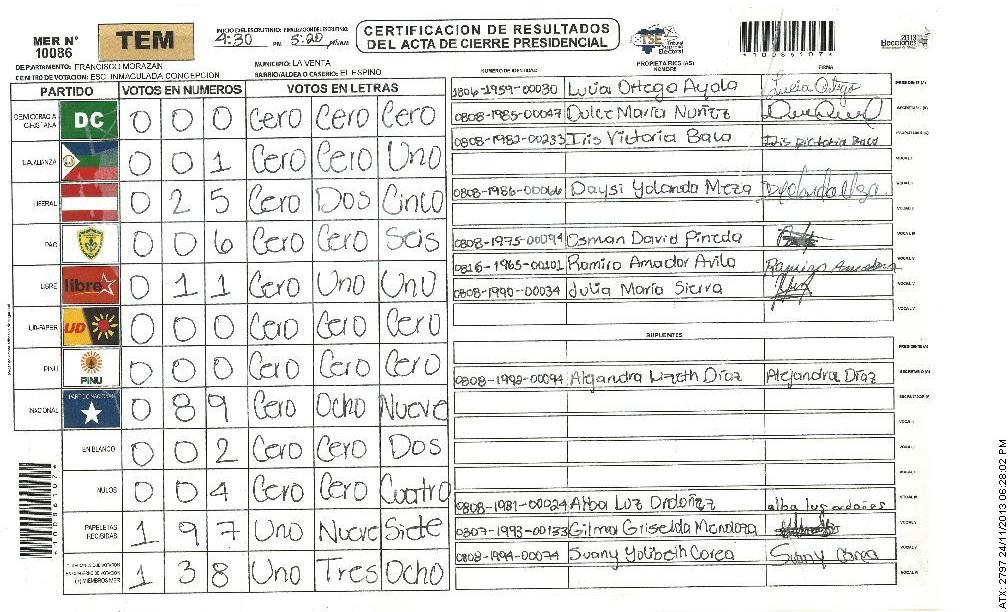 MER N° 10086
TEM
INICIO DEL ESCRUTINIO: FINALIZACION DEL ESCRUTINIO:
4:30 PM 5:20
CERTIFICACION DE RESULTADOS
DEL ACTA DE CIERRE PRESIDENCIAL
TSE
Tribunal Supremo Electoral
2013
Elecciones
DEPARTAMENTO: FRANCISCO MORAZAN
MUNICIPIO: LA VENTA
CENTRO DE VOTACION: ESC. INMACULADA CONCEPCION
BARRIO/ALDEA O CASERIO: EL ESPINO
PARTIDO VOTOS EN NUMEROS VOTOS EN LETRAS
DEMOCRACIA CRISTIANA DC 0 0 0 Cero Cero Cero
LA ALIANZA 0 0 1 Cero Cero Uno
LIBERAL 0 2 5 Cero Dos Cinco
PAC 0 0 6 Cero Cero Seis
LIBRE libre 0 1 1 Cero Uno Uno
UD-FAPER UD 0 0 0 Cero Cero Cero
PINU PINU 0 0 0 Cero Cero Cero
NACIONAL PARTIDO NACIONAL 0 8 9 Cero Ocho Nueve
EN BLANCO 0 0 2 Cero Cero Dos
NULOS 0 0 4 Cero Cero Cuatro
PAPELETAS RECIBIDAS 1 9 7 Uno Nueve Siete
1 3 8 Uno Tres Ocho
PROPIETARIOS (AS)
NUMERO DE IDENTIDAD NOMBRE FIRMA
0806-1959-00030 Lucia Ortega Ayala Lucia Ortega PRESIDENTE (A)
0808-1985-00047 Dulce María Nuñez SECRETARIO (A)
0808-1982-00233 Iris Victoria Baca Iris Victoria Baca
0808-1986-00066 Daysi Yolanda Meza
0808-1975-00094 Osman David Pineda
0816-1965-00101 Ramiro Amador Avila Ramiro Amador
0808-1990-00034 Julia María Sierra
SUPLENTES
PRESIDENTE (A)
0808-1992-00094 Alejandra Lizeth Díaz Alejandra Díaz SECRETARIO (A)
0808-1981-00024 Alba Luz Ordoñez alba luz ordoñes
0307-1993-00133 Gilma Griselda Mendoza
0808-1994-00074 Suany Yolibeth Corea Suany Corea
*10086107*
ATX: 2797 24/11/2013 06:28:02 PM